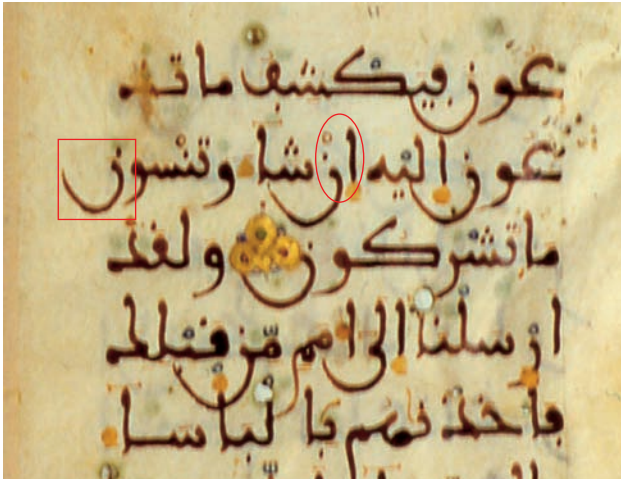 عون فيكشف ما تد
عون اليه ان شا وتنسون
ما تشركون ولقد
ارسلنا الى امم من قبلك
فاخذنهم بالباسا